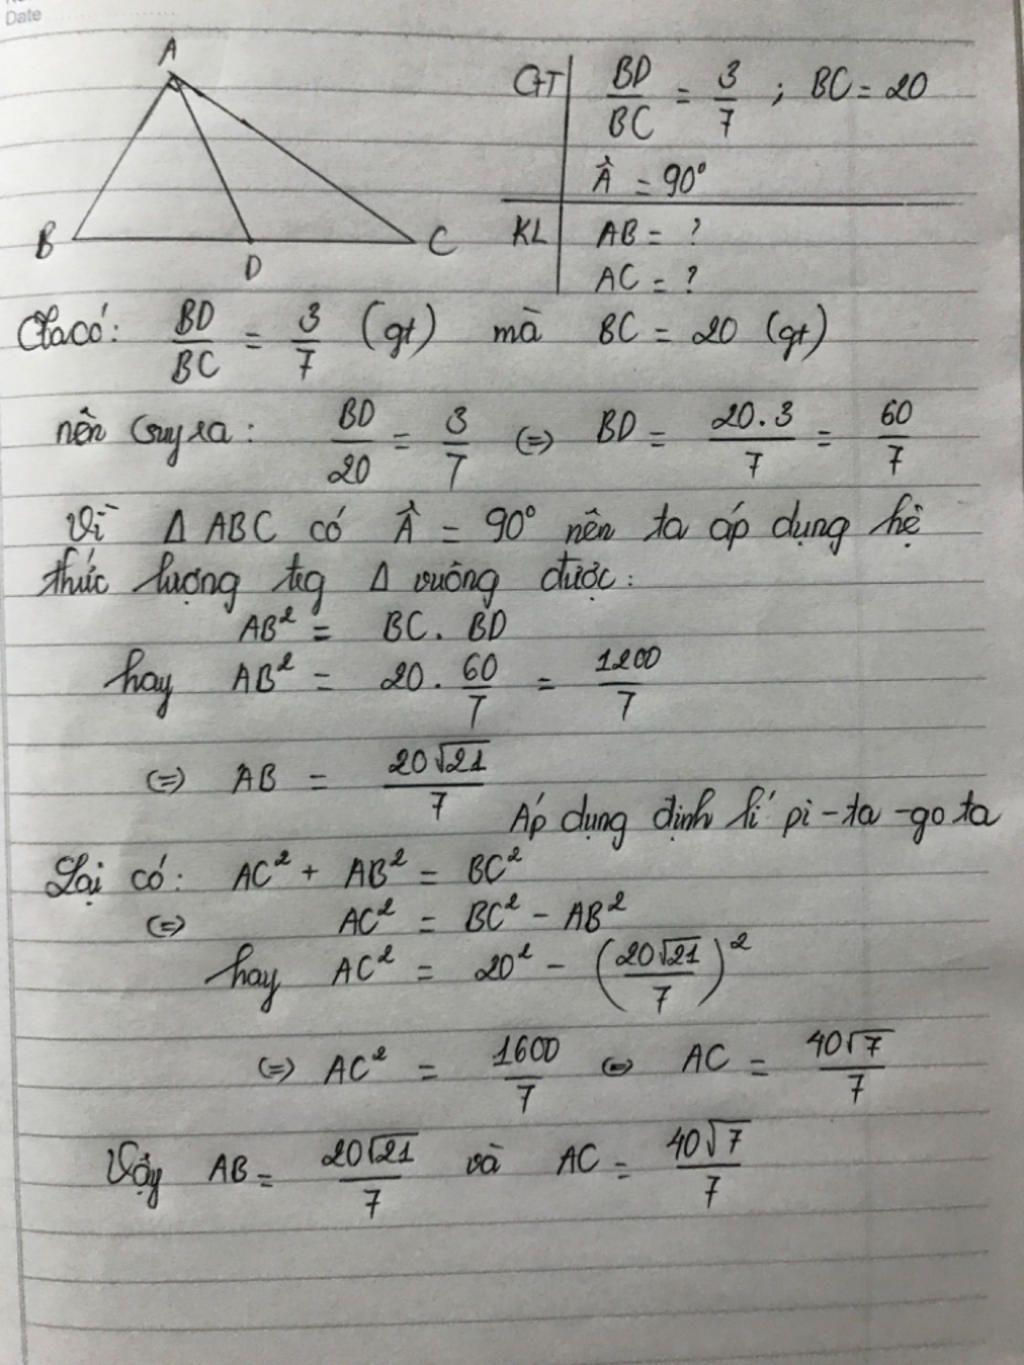 Date
A
B
D
C
GT BD/BC = 3/7 ; BC = 20
Â = 90°
KL AB = ?
AC = ?
Ta có: BD/BC = 3/7 (gt) mà BC = 20 (gt)
nên suy ra: BD/20 = 3/7 (=) BD = 20.3/7 = 60/7
Vì Δ ABC có Â = 90° nên ta áp dụng hệ
thức lượng trg Δ vuông được:
AB² = BC. BD
hay AB² = 20. 60/7 = 1200/7
(=) AB = 20√21/7
Áp dụng định lí pi-ta-go ta
Lại có: AC² + AB² = BC²
(=) AC² = BC² - AB²
hay AC² = 20² - (20√21/7)²
(=) AC² = 1600/7 (=) AC = 40√7/7
Vậy AB = 20√21/7 và AC = 40√7/7